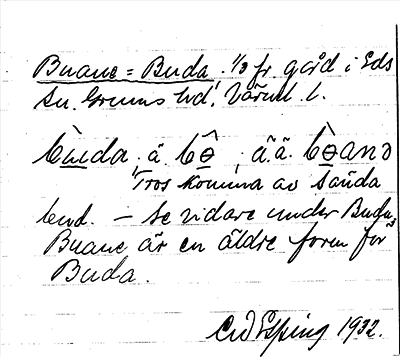 Buane = Buda. 1/3 fr. gård i Eds
sn. Grums hd, Värml. l.
bùda. ä. bô̱ ä.ä. bò̱and
Tros komma av samda
bud. – Se vidare under Buda,
Buane är en äldre form för
Buda.
1932.